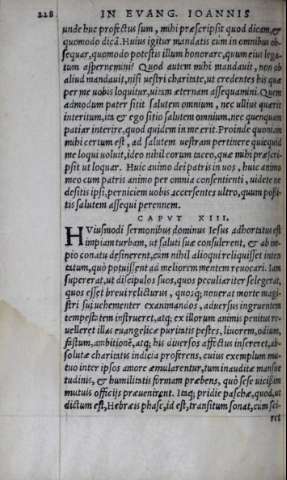 228 IN EVANG. IOANNIS
unde huc profectus sum, mihi præscripsit quod dicam, &
quomodo dicã. Huius igitur mandatis cum in omnibus ob-
sequar, quomodo potestis illum honorare, quum eius lega-
tum aspernemini? Quod autem mihi mandauit, non ob
aliud mandauit, nisi uestri charitate, ut credentes his quæ
per me uobis loquitur, uitam æternam assequamini. Quem
admodum pater sitit salutem omnium, nec ullius quærit
interitum, ita & ego sitio salutem omnium, nec quenquam
patiar interire, quod quidem in me erit. Proinde quoniam
mihi certum est, ad salutem uestram pertinere quicquid
me loqui uoluit, ideo nihil eorum taceo, quæ mihi præscri-
psit ut loquar. Huic animo dei patris in uos, huic animo
meo cum patris animo per omnia consentienti, uidete ne
desitis ipsi, perniciem uobis accersentes ultro, quum possi-
tis salutem assequi perennem.
CAPVT XIII.
HVIusmodi sermonibus dominus Iesus adhortatus est
impiam turbam, ut saluti suæ consulerent, & ab im-
pio conatu desinerent, cum nihil alioqui reliquisset inten
tatum, quò potuissent ad meliorem mentem reuocari. Iam
supererat, ut discipulos suos, quos peculiariter selegerat,
quos esset breui relicturus, quosq; nouerat morte magi-
stri sui uehementer exanimandos, aduersus ingruentem
tempestatem instrueret, atq; ex illorum animis penitus re-
uelleret illas euangelicæ puritatis pestes, liuorem, odium,
fastum, ambitionẽ, atq; his diuersos affectus insereret, ab-
solutæ charitatis indicia proferens, cuius exemplum mu-
tuo inter ipsos amore æmularentur, tum inauditæ mansue
tudinis, & humilitatis formam præbens, quò sese uicissim
mutuis officijs præuenirent. Itaq; pridie paschæ, quod, ut
dictum est, Hebræis phase, id est, transitum sonat, cum sci-
ret